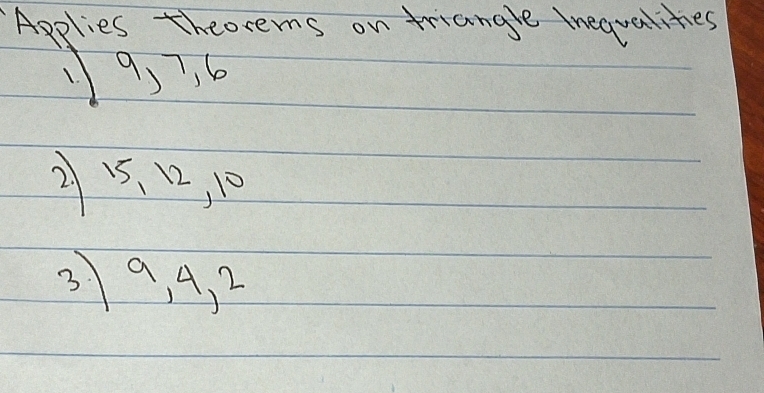 Applies theorems on triangle Inequalities
1.) 9, 7, 6
2.) 15, 12, 10
3.) 9, 4, 2